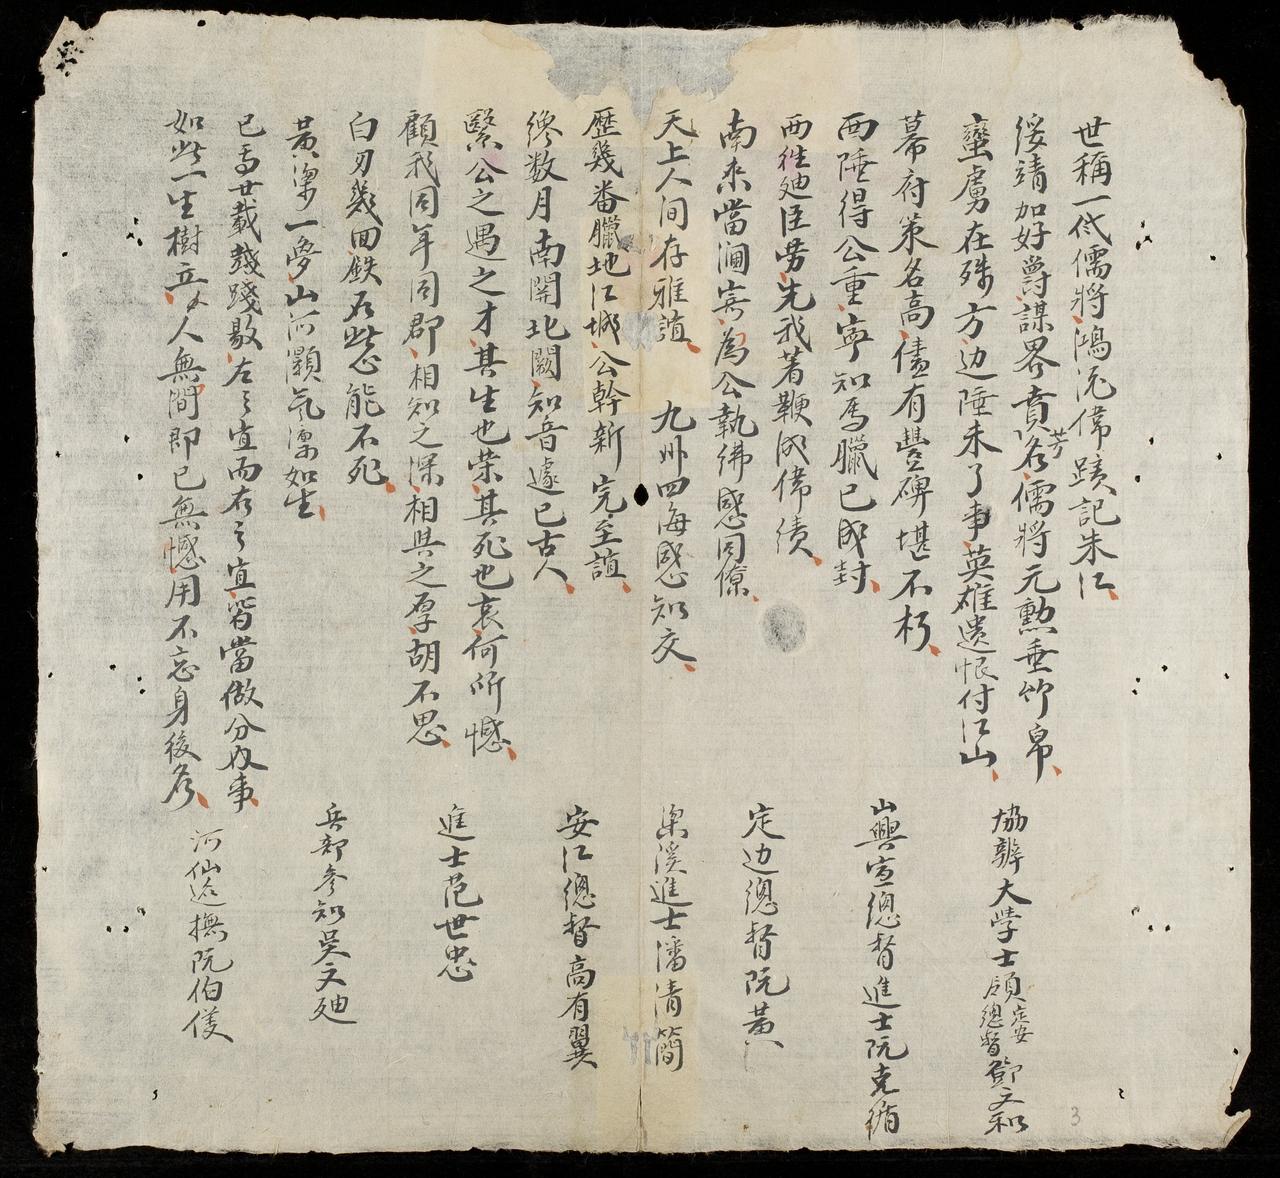 世稱一代儒將鴻流偉蹟記朱江
綏靖加好爵謀畧賁芳名儒將元勲垂竹帛
蠻虜在殊方边陲未了事英雄遺恨付江山
幕府策名高儘有豐碑堪不朽
西陲得公重寧知馬臘已成封
西徃廸臣勞先我著鞭成偉績
南来當涸寄為公執紼感同僚
天上人间存雅誼　九州四海感知交
歷幾番臘地江城公幹新完至誼
纔数月南關北闕知音遽已古人
緊公之遇之才其生也荣其死也哀何所憾
顧我同年同郡相知之深相與之厚胡不思
白刃幾囬鉄石此心能不死
黃粱一夢山河顥氣凛如生
已焉廿載践敭左之宜而右之宜皆當做分内事
如此一生樹立人無間即已無憾用不忘身後名
協辦大学士領定安總督鄧文和
山興宣總督進士阮克循
定边總督阮黃
梁溪進士潘清簡
安江總督高有翼
進士范世忠
兵部参知吴文廸
河仙巡撫阮伯儀
3